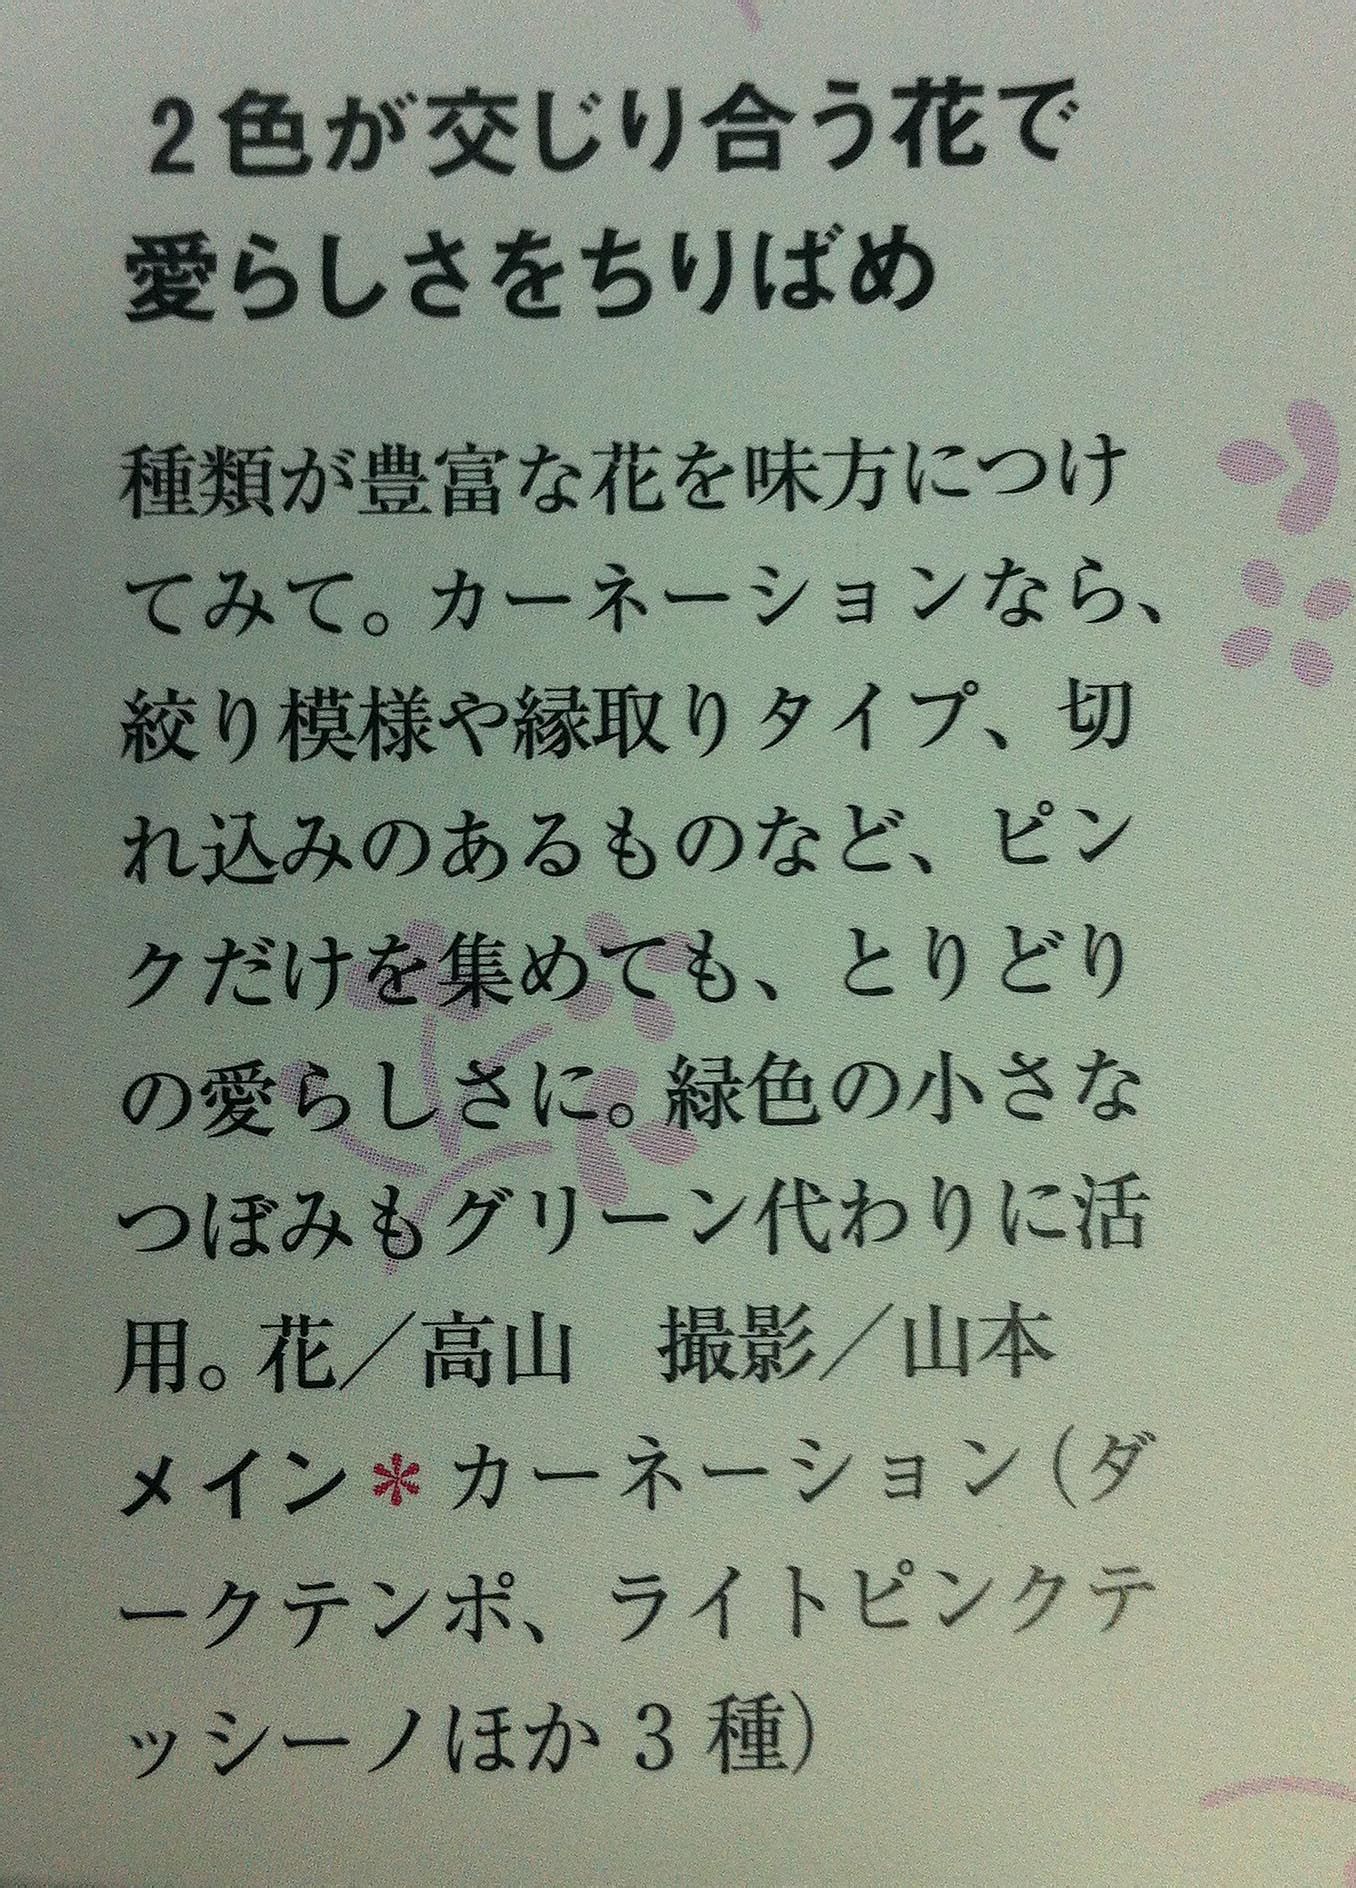 2色が交じり合う花で
愛らしさをちりばめ
種類が豊富な花を味方につけ
てみて。カーネーションなら、
絞り模様や縁取りタイプ、切
れ込みのあるものなど、ピン
クだけを集めても、とりどり
の愛らしさに。緑色の小さな
つぼみもグリーン代わりに活
用。花／高山　撮影／山本
メイン＊カーネーション（ダ
ークテンポ、ライトピンクテ
ッシーノほか 3 種）